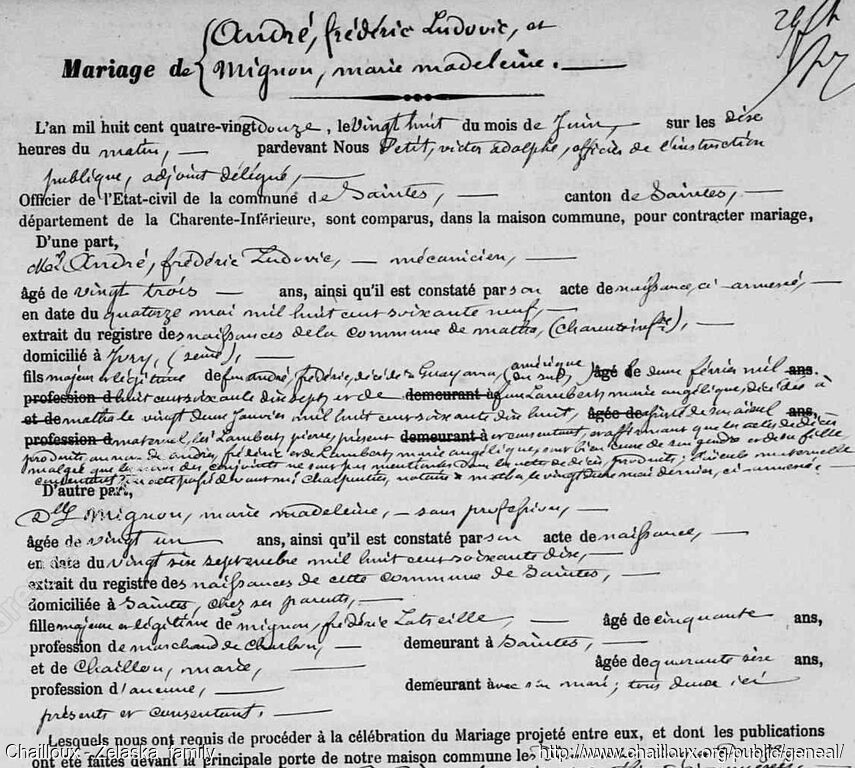 André, frédéric Ludovic, et
Mariage de Mignon, marie madeleine.
L'an mil huit cent quatre-vingt douze, le vingt huit du mois de Juin, sur les dix
heures du matin, pardevant Nous Petit, victor adolphe, officier de l'instruction
publique, adjoint délégué,
Officier de l'Etat-civil de la commune de Saintes, canton de Saintes,
département de la Charente-Inférieure, sont comparus, dans la maison commune, pour contracter mariage,
D'une part,
Mr. André, frédéric Ludovic, mécanicien,
âgé de vingt trois ans, ainsi qu'il est constaté par son acte de naissance, ci-annexé,
en date du quatorze mai mil huit cent soixante neuf,
extrait du registre des naissances de la commune de matha, (charente infre),
domicilié à Ivry, (seine),
fils majeur et légitime de feu andré, frédéric, décédé à Guayana, (amérique du sud), âgé le deux février mil ans.
profession d huit cent soixante dix sept, et de demeurant à feue Lambert, marie angélique, décédée à
et de matha le vingt deux Janvier mil huit cent soixante dix huit, âgée de aïeul ans,
profession d maternel, Lambert, pierre, présent demeurant à et consentant, et affirmant que les actes de décès
produits au nom de andré, frédéric et de Lambert, marie angélique, sont bien ceux de son gendre et de sa fille
malgré que les noms des conjoints ne sont pas mentionnés dans les actes de décès produits; l'aïeule maternelle
consentante acte passé devant me Charpentier, notaire à matha, le vingt deux mai dernier, ci-annexé,
D'autre part,
Dlle Mignon, marie madeleine, sans profession,
âgée de vingt un ans, ainsi qu'il est constaté par son acte de naissance,
en date du vingt six septembre mil huit cent soixante dix,
extrait du registre des naissances de cette commune de Saintes,
domiciliée à Saintes, chez ses parents,
fille majeure et légitime de mignon, frédéric Latreille, âgé de cinquante ans,
profession de marchand de charbon, demeurant à Saintes,
et de Chaillou, marie, âgée de quarante six ans,
profession d'aucune, demeurant avec son mari; tous deux ici
présents et consentant.
Lesquels nous ont requis de procéder à la célébration du Mariage projeté entre eux, et dont les publications
ont été faites devant la principale porte de notre maison commune le
Chailloux - Zelaska family
http://www.chailloux.org/public/geneal/